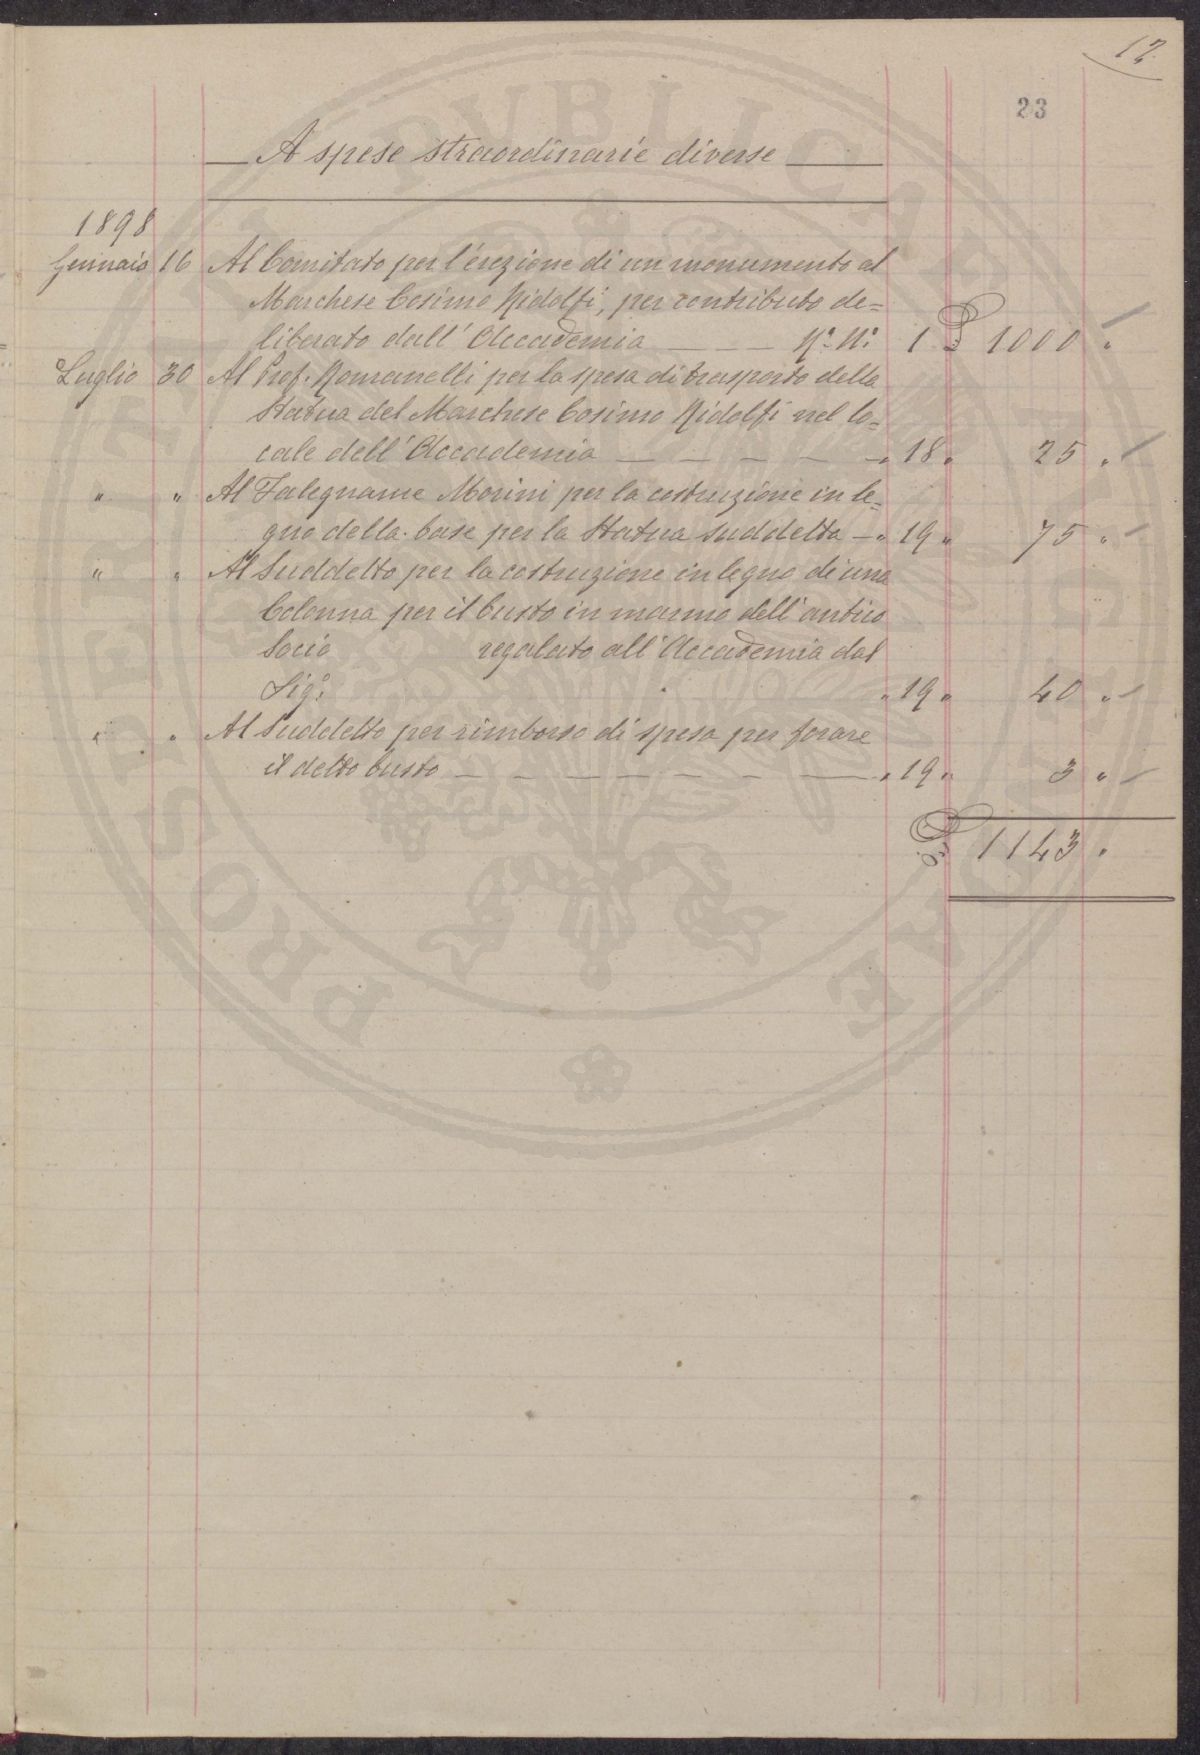 17.
23
A spese straordinarie diverse
1898
Gennaio 16 Al Comitato per l'erezione di un monumento al
Marchese Cosimo Ridolfi, per contributo de=
liberato dall' Accademia N.° M.° 1 £ 1000 "
Luglio 30 Al Prof. Romanelli per la spesa di trasporto della
Statua del Marchese Cosimo Ridolfi nel lo=
cale dell' Accademia " 18 " 25 "
" " Al Falegname Morini per la costruzione in le=
gno della base per la Statua suddetta " 19 " 75 "
" " Al Suddetto per la costruzione in legno di una
Colonna per il busto in marmo dell' antico
Socio regalato all' Accademia dal
Sig.r " 19 " 40 "
" " Al Suddetto per rimborso di spesa per forare
il detto busto " 19 " 3 "
£ 1143 "